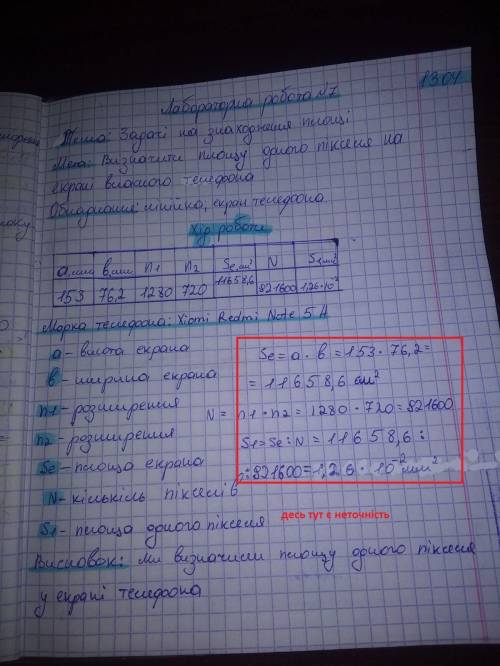 Лабораторна робота №7
13.04
Тема: Задачі на знаходження площі
Мета: Визначити площу одного пікселя на
екрані власного телефона
Обладнання: лінійка, екран телефона
Хід роботи
а,мм в,мм n1 n2 Se,см² N S1,мм²
153 76,2 1280 720 11658,6 821600 1,26·10⁻²
Марка телефона: Xiomi Redmi Note 5 A
а - висота екрана
в - ширина екрана
n1 - розширення
n2 - розширення
Se - площа екрана
N - кількість пікселів
S1 - площа одного пікселя
Se = a · в = 153 · 76,2 =
= 11658,6 см²
N = n1 · n2 = 1280 · 720 = 821600
S1 = Se : N = 11658,6 :
: 821600 = 1,26 · 10⁻² мм²
десь тут є неточність
Висновок: ми визначили площу одного пікселя
у екрані телефона